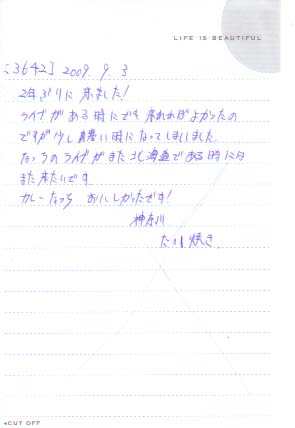 LIFE IS BEAUTIFUL
[3642] 2009. 9. 3
2年ぶりに来ました!
ライブがある時にでも来れればよかったの
ですが少し遅い時になってしまいました。
なっちのライブがまた北海道である時には
また来たいです。
カレーなっち おいしかったです!
神奈川
たこ焼き
◂CUT OFF